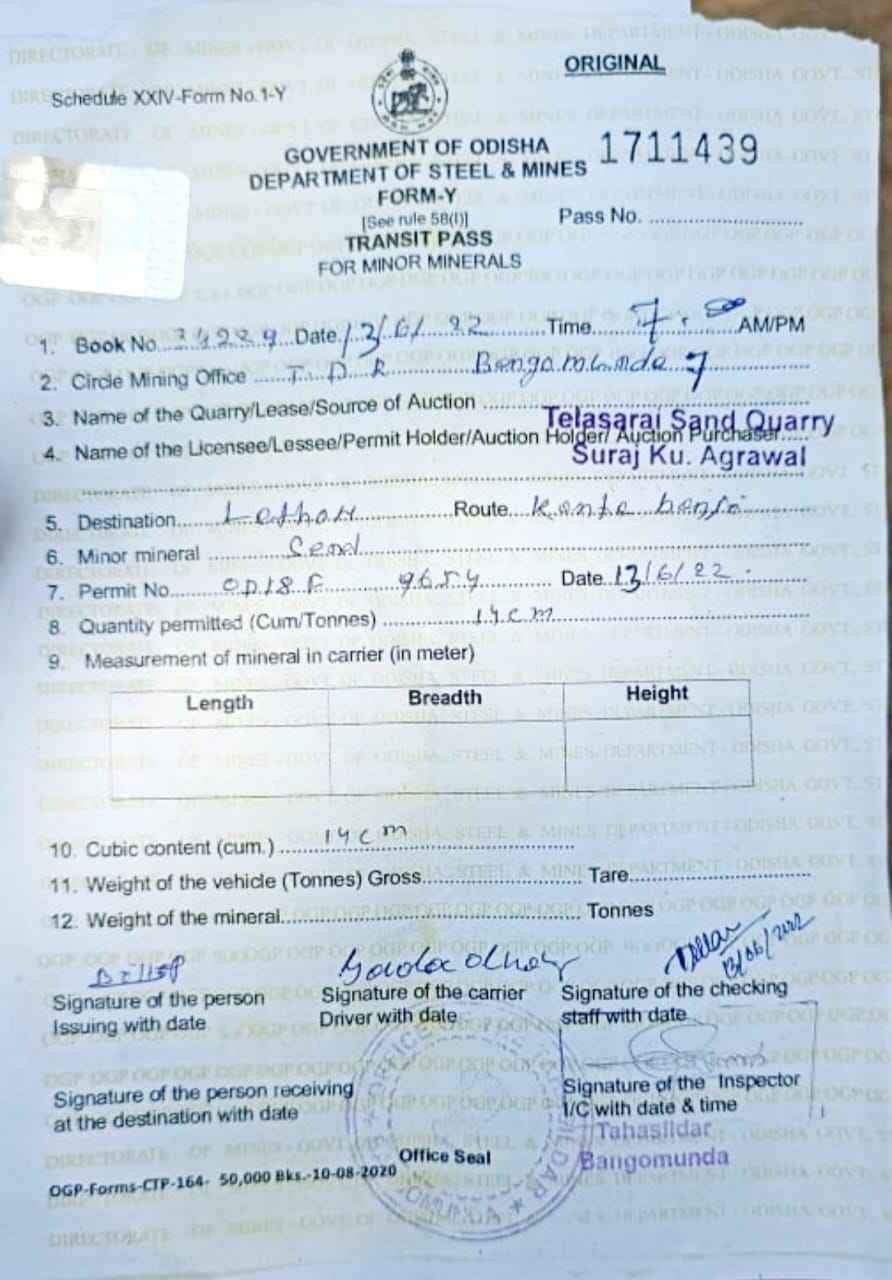 ORIGINAL
Schedule XXIV-Form No.1-Y
GOVERNMENT OF ODISHA
DEPARTMENT OF STEEL & MINES
1711439
FORM-Y
[See rule 58(I)]
Pass No. ............
TRANSIT PASS
FOR MINOR MINERALS
1. Book No. Date 13/6/22 Time 7.00 AM/PM
2. Circle Mining Office T D R
3. Name of the Quarry/Lease/Source of Auction ............
Telasarai Sand Quarry
4. Name of the Licensee/Lessee/Permit Holder/Auction Holder/ Auction Purchaser......
Suraj Ku. Agrawal
5. Destination Route
6. Minor mineral Send
7. Permit No. OD18F 9654 Date 13/6/22
8. Quantity permitted (Cum/Tonnes) 14cm
9. Measurement of mineral in carrier (in meter)
Length Breadth Height
10. Cubic content (cum.) 14cm
11. Weight of the vehicle (Tonnes) Gross............ Tare............
12. Weight of the mineral............ Tonnes
13/06/2022
Signature of the person Signature of the carrier Signature of the checking
Issuing with date Driver with date staff with date
Signature of the person receiving Signature of the Inspector
at the destination with date I/C with date & time
Tahasildar
Office Seal Bangomunda
OGP-Forms-CTP-164- 50,000 Bks.-10-08-2020